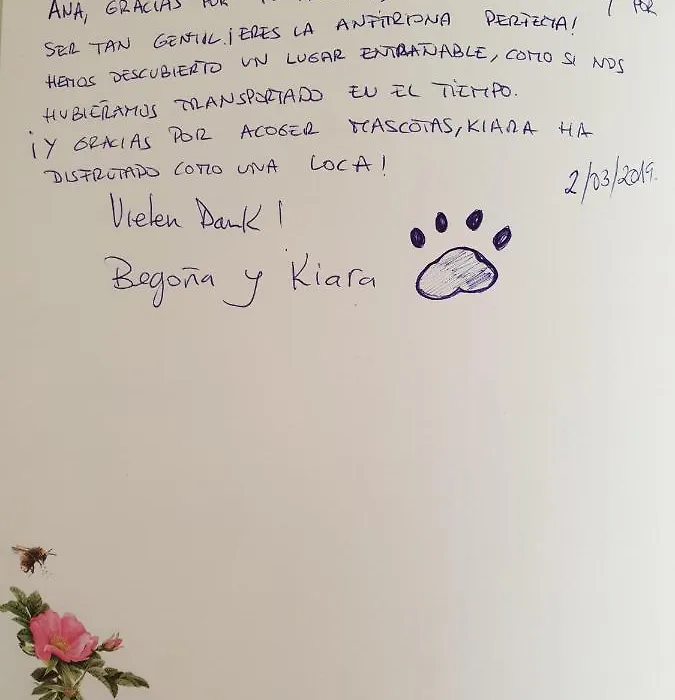 ANA, GRACIAS POR
SER TAN GENTIL. ¡ERES LA ANFITRIONA PERFECTA!
HEMOS DESCUBIERTO UN LUGAR ENTRAÑABLE, COMO SI NOS
HUBIERAMOS TRANSPORTADO EN EL TIEMPO.
¡Y GRACIAS POR ACOGER MASCOTAS, KIARA HA
DISFRUTADO COMO UNA LOCA!
2/03/2019.
Vielen Dank!
Begoña y Kiara